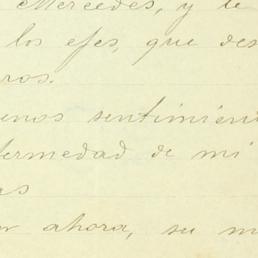 Mercedes, y te
los efes, que des
ros.
enos sentimien
fermedad de mi
as
r ahora, su m